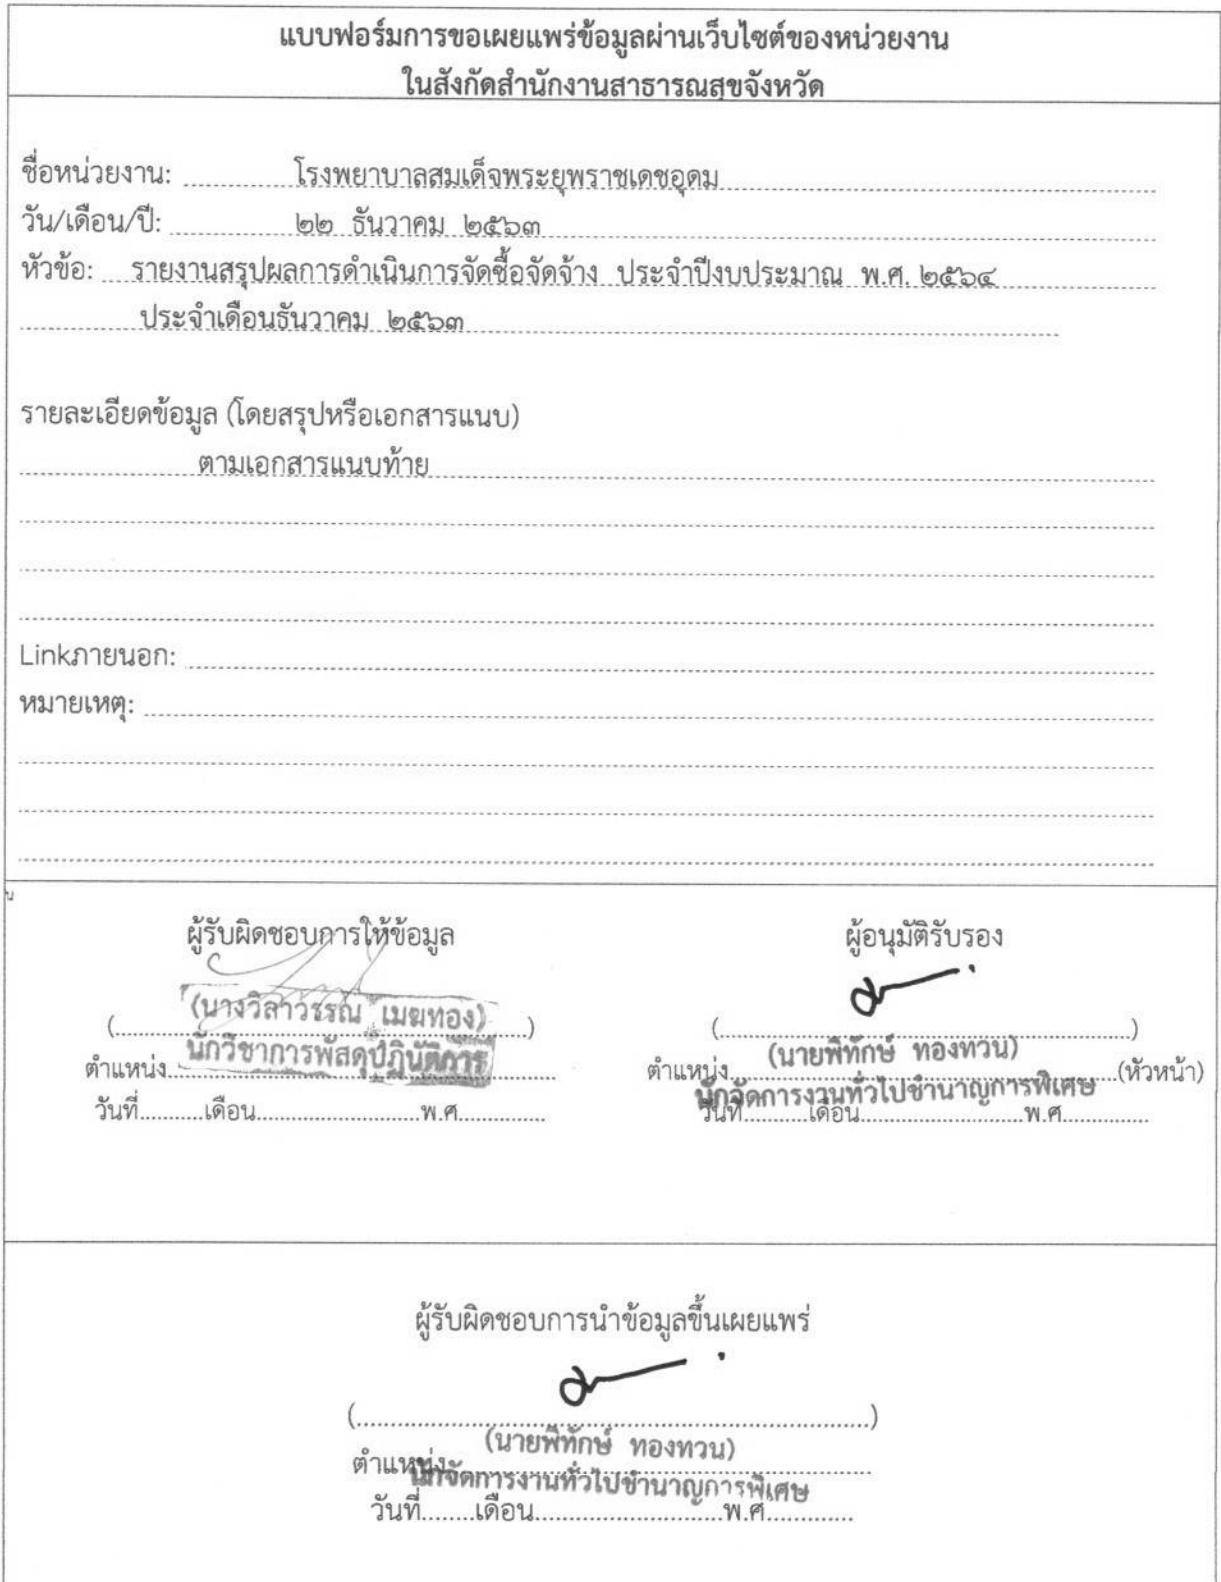 แบบฟอร์มการขอเผยแพร่ข้อมูลผ่านเว็บไซต์ของหน่วยงาน
ในสังกัดสำนักงานสาธารณสุขจังหวัด
ชื่อหน่วยงาน: โรงพยาบาลสมเด็จพระยุพราชเดชอุดม
วัน/เดือน/ปี: ๒๒ ธันวาคม ๒๕๖๓
หัวข้อ: รายงานสรุปผลการดำเนินการจัดซื้อจัดจ้าง ประจำปีงบประมาณ พ.ศ. ๒๕๖๔
ประจำเดือนธันวาคม ๒๕๖๓
รายละเอียดข้อมูล (โดยสรุปหรือเอกสารแนบ)
ตามเอกสารแนบท้าย
Linkภายนอก:
หมายเหตุ:
น
ผู้รับผิดชอบการให้ข้อมูล
(นางวิลาวรรณ เมฆทอง)
(..........)
นักวิชาการพัสดุปฏิบัติการ
ตำแหน่ง..........
วันที่..........เดือน..........พ.ศ..........
ผู้อนุมัติรับรอง
(..........)
(นายพิทักษ์ ทองทวน)
ตำแหน่ง..........(หัวหน้า)
นักจัดการงานทั่วไปชำนาญการพิเศษ
วันที่..........เดือน..........พ.ศ..........
ผู้รับผิดชอบการนำข้อมูลขึ้นเผยแพร่
(..........)
(นายพิทักษ์ ทองทวน)
ตำแหน่ง..........
นักจัดการงานทั่วไปชำนาญการพิเศษ
วันที่........เดือน..........พ.ศ..........